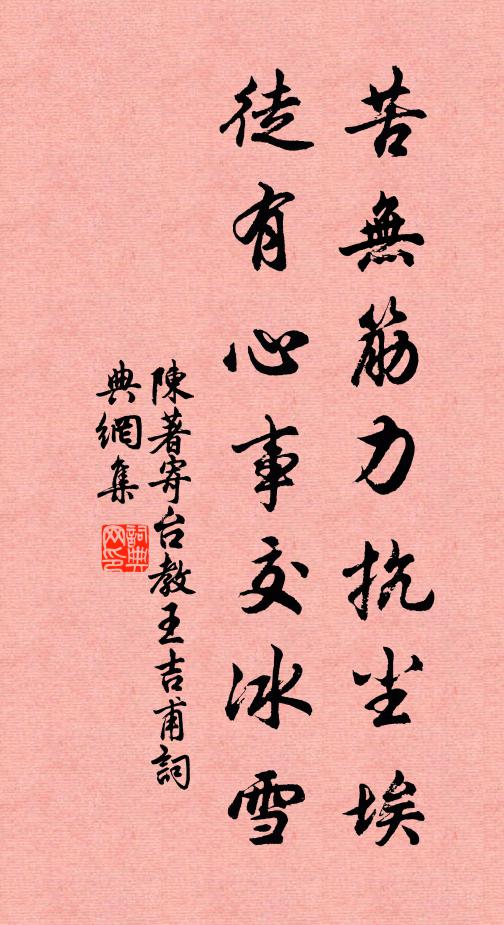 苦無筋力抗尘埃
徒有心事交冰雪
陳著寄台教王吉甫詞
典網集
詞典网印